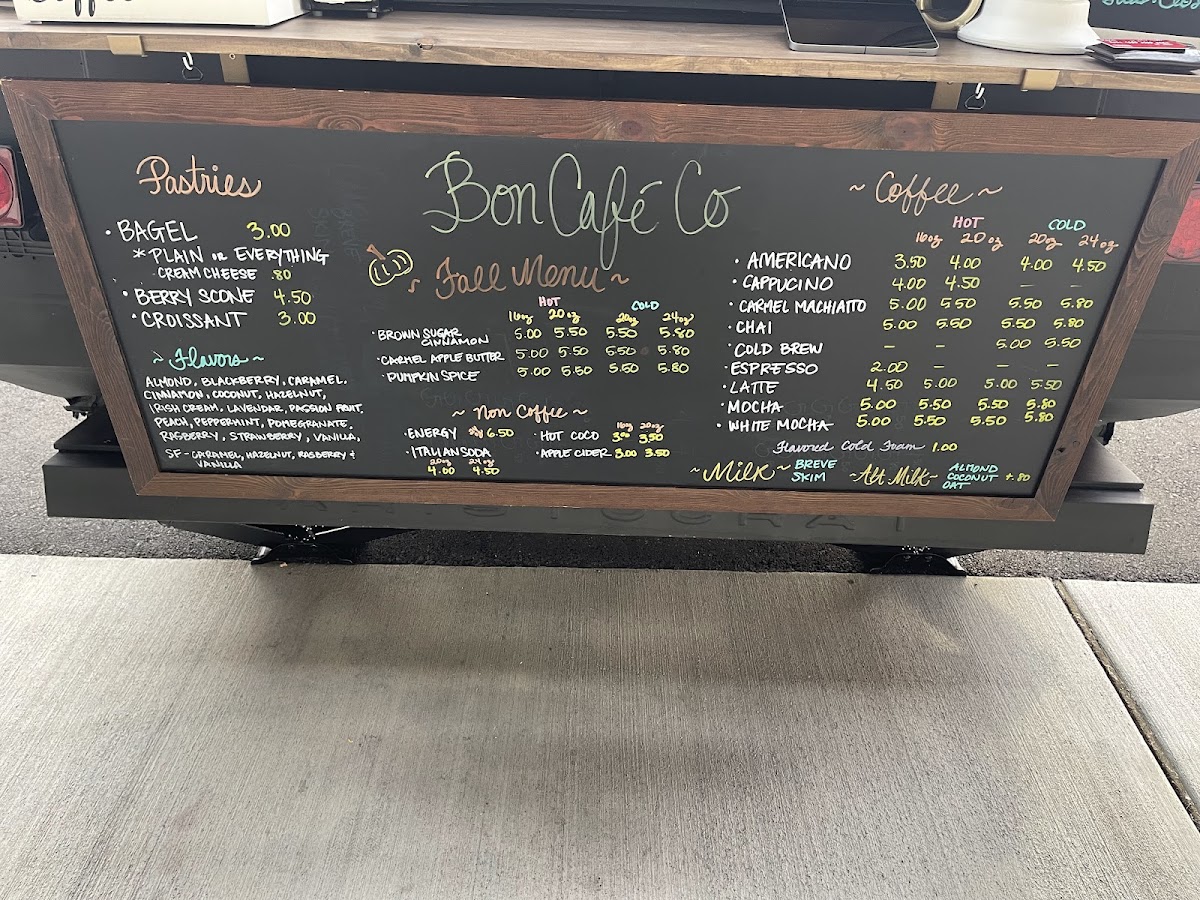 Coffee
Bon Café Co
Pastries
• BAGEL 3.00
*PLAIN OR EVERYTHING
CREAM CHEESE .80
• BERRY SCONE 4.50
• CROISSANT 3.00
~ Flavors ~
ALMOND, BLACKBERRY, CARAMEL,
CINNAMON, COCONUT, HAZELNUT,
IRISH CREAM, LAVENDAR, PASSION FRUIT,
PEACH, PEPPERMINT, POMEGRANATE,
RASPBERRY, STRAWBERRY, VANILLA,
SF - CARAMEL, HAZELNUT, RASBERRY +
VANILLA
~ Fall Menu ~
HOT COLD
16oz 20oz 20oz 24oz
• BROWN SUGAR
CINNAMON 5.00 5.50 5.50 5.80
• CARMEL APPLE BUTTER 5.00 5.50 5.50 5.80
• PUMPKIN SPICE 5.00 5.50 5.50 5.80
~ Non Coffee ~
• ENERGY 6.50
• ITALIAN SODA
20oz 24oz
4.00 4.50
16oz 20oz
• HOT COCO 3.00 3.50
• APPLE CIDER 3.00 3.50
~ Coffee ~
HOT COLD
16oz 20oz 20oz 24oz
• AMERICANO 3.50 4.00 4.00 4.50
• CAPPUCINO 4.00 4.50 – –
• CARMEL MACHIATTO 5.00 5.50 5.50 5.80
• CHAI 5.00 5.50 5.50 5.80
• COLD BREW – – 5.00 5.50
• ESPRESSO 2.00 – – –
• LATTE 4.50 5.00 5.00 5.50
• MOCHA 5.00 5.50 5.50 5.80
• WHITE MOCHA 5.00 5.50 5.50 5.80
Flavored Cold Foam 1.00
~ Milk ~ BREVE
SKIM
~ Alt Milk ~ ALMOND
COCONUT +.80
OAT